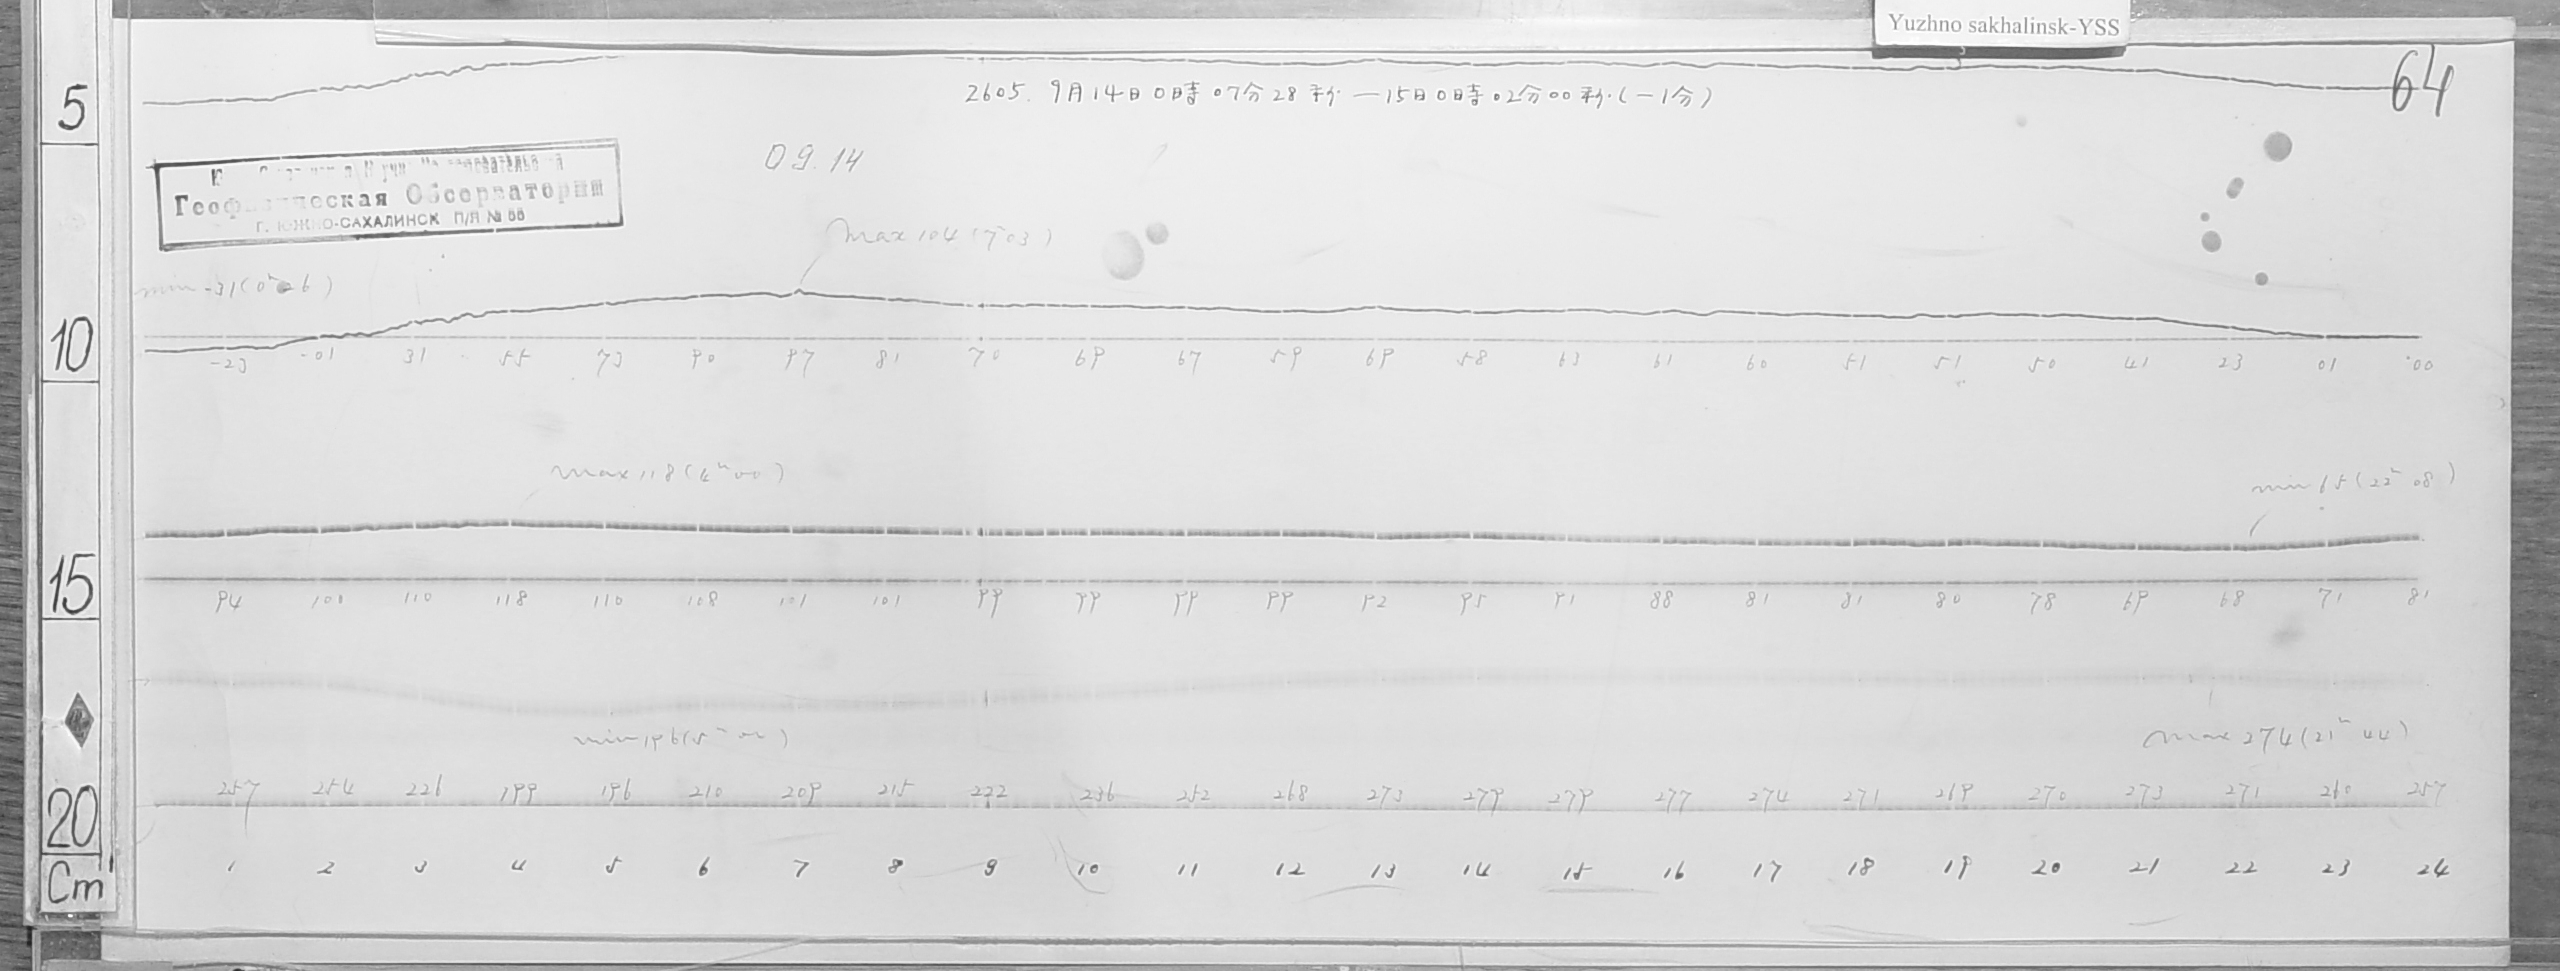 Yuzhno sakhalinsk-YSS
64
5
2605. 9月14日0時07分28秒—15日0時02分00秒.(-1分)
09.14
Геофизическая Обсерватория
Г. ЮЖНО-САХАЛИНСК П/Я №
max 104 (7h03)
min -31 (0h 6)
10
-23 -01 31 55 73 90 97 81 70 69 67 59 69 58 63 61 60 51 51 50 41 23 01 00
max 118 (4h00)
min 65 (22h08)
15
94 100 110 118 110 108 101 101 99 99 99 99 92 95 91 88 81 81 80 78 69 68 71 81
min 196 (5h
max 274 (21h44)
257 254 226 199 196 210 209 215 222 236 252 268 273 279 279 277 274 271 269 270 273 271 260 257
20
1 2 3 4 5 6 7 8 9 10 11 12 13 14 15 16 17 18 19 20 21 22 23 24
Cm